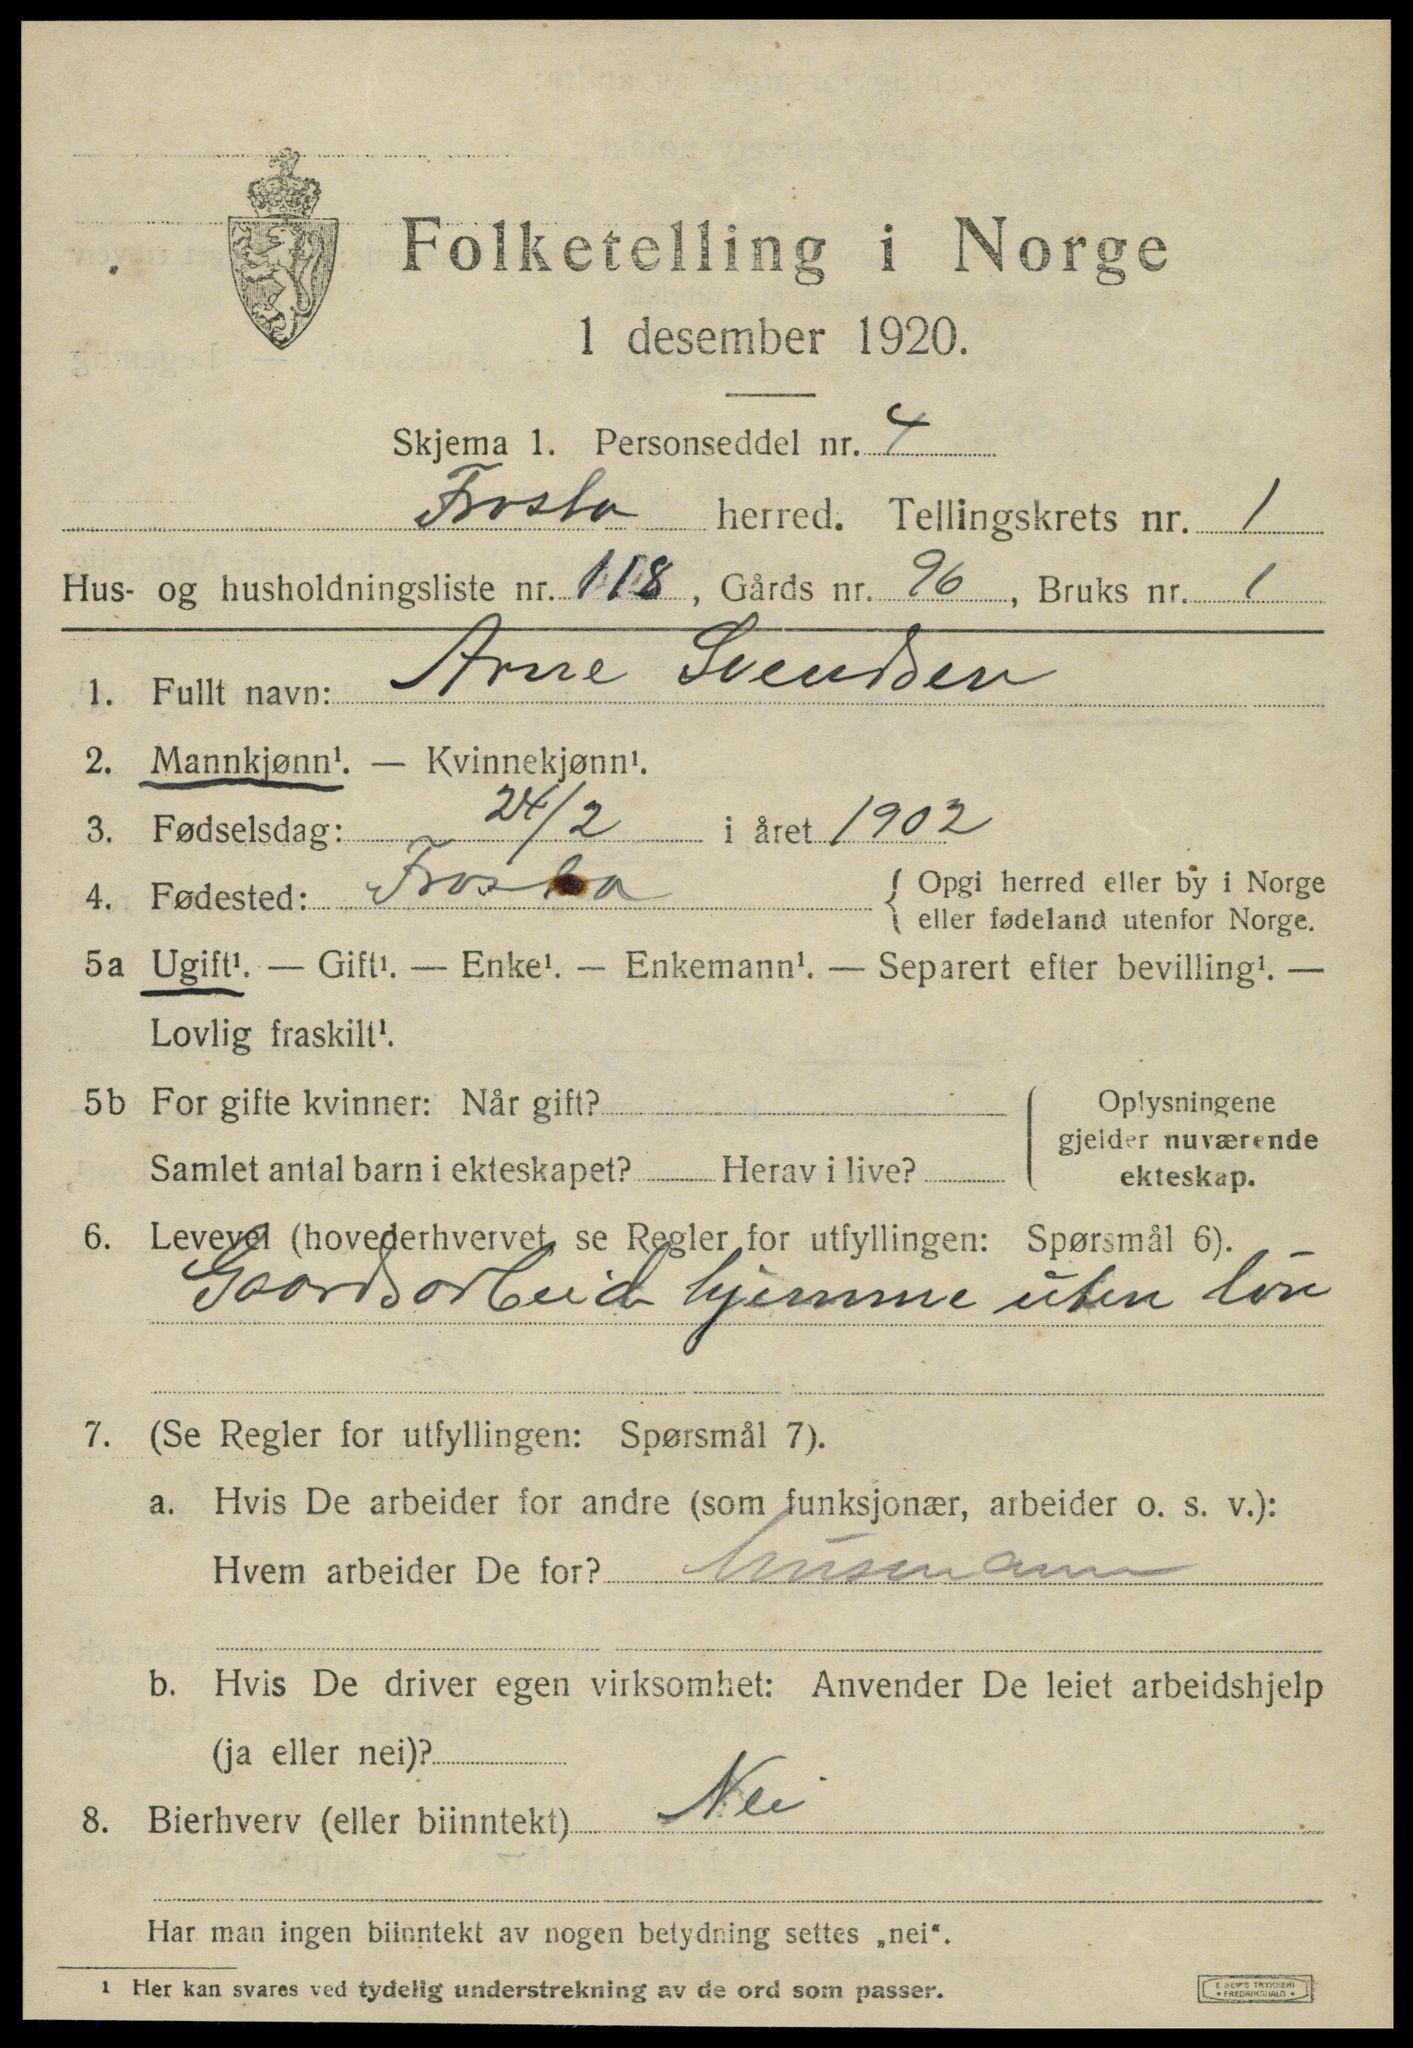 Folketelling i Norge
1 desember 1920.
Skjema 1. Personseddel nr. 4
Frosta herred. Tellingskrets nr. 1
Hus- og husholdningsliste nr. 118, Gårds nr. 96, Bruks nr. 1
1. Fullt navn: Arne Svendsen
2. Mannkjønn¹. — Kvinnekjønn¹.
3. Fødselsdag: 24/2 i året 1902
4. Fødested: Frosta { Opgi herred eller by i Norge
eller fødeland utenfor Norge.
5a Ugift¹. — Gift¹. — Enke¹. — Enkemann¹. — Separert efter bevilling¹. —
Lovlig fraskilt¹.
5b For gifte kvinner: Når gift?
Samlet antal barn i ekteskapet? Herav i live?
Oplysningene
gjelder nuværende
ekteskap.
6. Levevei (hovederhvervet, se Regler for utfyllingen: Spørsmål 6).
Gaardsarbeid hjemme uten løn
7. (Se Regler for utfyllingen: Spørsmål 7).
a. Hvis De arbeider for andre (som funksjonær, arbeider o. s. v.):
Hvem arbeider De for?
b. Hvis De driver egen virksomhet: Anvender De leiet arbeidshjelp
(ja eller nei)?
8. Bierhverv (eller biinntekt) Nei
Har man ingen biinntekt av nogen betydning settes „nei“.
¹ Her kan svares ved tydelig understrekning av de ord som passer.
E. SEM'S TRYKKERI
• FREDRIKSHALD •